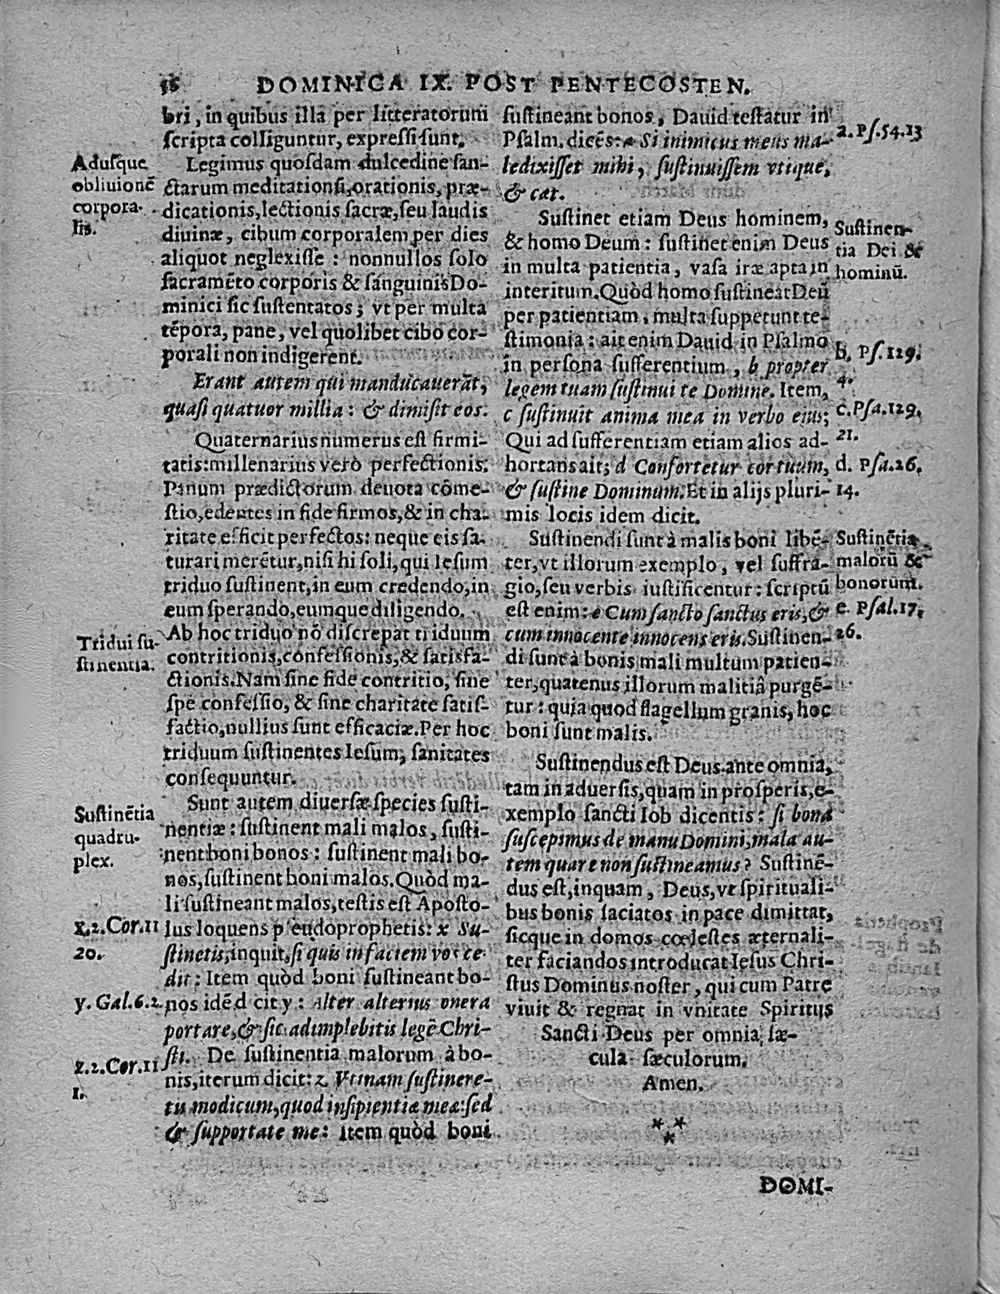 56 DOMINICA IX. POST PENTECOSTEN.
bri, in quibus illa per litteratorum
scripta colliguntur, expressi sunt.
Adusque
obliuionē
corpora-
lis.
Legimus quosdam dulcedine san-
ctarum meditationū, orationis, præ-
dicationis, lectionis sacræ, seu laudis
diuinæ, cibum corporalem per dies
aliquot neglexisse: nonnullos solo
sacramēto corporis & sanguinis Do-
minici sic sustentatos; vt per multa
tēpora, pane, vel quolibet cibo cor-
porali non indigerent.
Erant autem qui manducauerāt,
quasi quatuor millia: & dimisit eos.
Quaternarius numerus est firmi-
tatis: millenarius verò perfectionis.
Panum prædictorum deuota cōme-
stio, edentes in fide firmos, & in cha-
ritate efficit perfectos: neque eis sa-
turari merētur, nisi hi soli, qui Iesum
triduo sustinent, in eum credendo, in
eum sperando, eumque diligendo.
Tridui su-
stinentia.
Ab hoc triduo nō discrepat triduum
contritionis, confessionis, & satisfa-
ctionis. Nam sine fide contritio, sine
spe confessio, & sine charitate satis-
factio, nullius sunt efficaciæ. Per hoc
triduum sustinentes Iesum, sanitates
consequuntur.
Sustinētia
quadru-
plex.
Sunt autem diuersæ species susti-
nentiæ: sustinent mali malos, susti-
nent boni bonos: sustinent mali bo-
nos, sustinent boni malos. Quòd ma-
li sustineant malos, testis est Aposto-
x. 2. Cor. 11
20.
lus loquens pseudoprophetis: x Su-
stinetis, inquit, si quis in faciem vos ce-
dit: Item quòd boni sustineant bo-
y. Gal. 6. 2.
nos idē dicit y: Alter alterius onera
portare, & sic adimplebitis legē Chri-
sti. De sustinentia malorum à bo-
z. 2. Cor. 11
1.
nis, iterum dicit: z Vtinam sustinere-
tis modicum, quod insipientiæ meæ: sed
& supportate me: Item quòd boni
sustineant bonos, Dauid testatur in
Psalm. dicēs: a Si inimicus meus ma-
a. Ps. 54. 13
ledixisset mihi, sustinuissem vtique,
& cæt.
Sustinet etiam Deus hominem,
Sustinen-
tia Dei &
hominū.
& homo Deum: sustinet enim Deus
in multa patientia, vasa iræ apta in
interitum. Quòd homo sustineat Deū
per patientiam, multa suppetunt te-
stimonia: ait enim Dauid in Psalmo
b. Ps. 129.
4.
in persona sufferentium, b propter
legem tuam sustinui te Domine. Item,
c sustinuit anima mea in verbo eius;
c. Psa. 129.
21.
Qui ad sufferentiam etiam alios ad-
hortans ait; d Confortetur cor tuum,
d. Psa. 26.
14.
& sustine Dominum. Et in alijs pluri-
mis locis idem dicit.
Sustinendi sunt à malis boni libē-
Sustinētia
malorū &
bonorum.
ter, vt illorum exemplo, vel suffra-
gio, seu verbis iustificentur: scriptū
est enim: e Cum sancto sanctus eris, &
e. Psal. 17.
26.
cum innocente innocens eris. Sustinen-
di sunt à bonis mali multum patien-
ter, quatenus illorum malitiâ purgē-
tur: quia quod flagellum granis, hoc
boni sunt malis.
Sustinendus est Deus ante omnia,
tam in aduersis, quam in prosperis, e-
xemplo sancti Iob dicentis: si bona
suscepimus de manu Domini, mala au-
tem quare non sustineamus? Sustinē-
dus est, inquam, Deus, vt spirituali-
bus bonis saciatos in pace dimittat,
sicque in domos cœlestes æternali-
ter faciandos introducat Iesus Chri-
stus Dominus noster, qui cum Patre
viuit & regnat in vnitate Spiritus
Sancti Deus per omnia sæ-
cula sæculorum.
Amen.
DOMI-